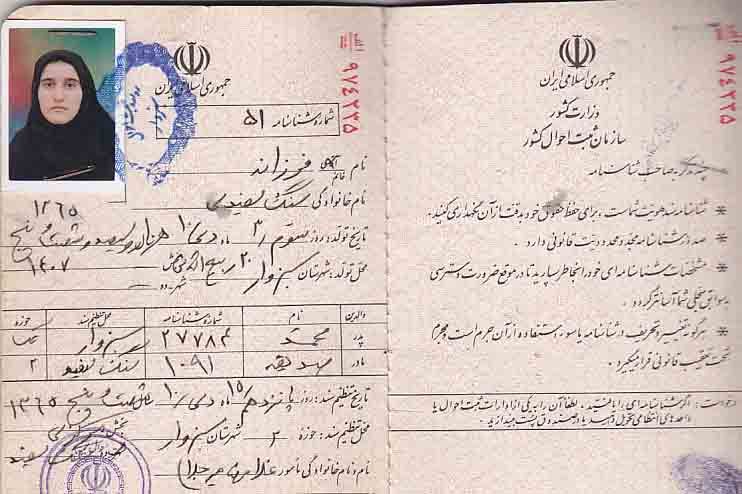 جمهوری اسلامی ایران
شماره شناسنامه ۵۱
نام آقای خانم فرزانه
نام خانوادگی سنگ سفیدی
۱۳۶۵
تاریخ تولد: روز سوم /۳ ماه دی /۱۰ هزار و سیصد و شصت و پنج
۱۴۰۷
محل تولد: شهرستان سبزوار
والدین نام شماره شناسنامه محل تنظیم سند حوزه
پدر محمد ۲۷۷۸۴ سبزوار
مادر صدیقه ۱۰۹۱ سنگ سفید ۲
تاریخ تنظیم سند: روز پانزدهم /۱۵ ماه دی /۱۰ شصت و پنج ۱۳۶۵
محل تنظیم سند: حوزه ۲ شهرستان سبزوار
نام و نام خانوادگی مامور غلامرضا
الف
۹۷۴۲۲۵
جمهوری اسلامی ایران
وزارت کشور
سازمان ثبت احوال کشور
چند تذکر به صاحب شناسنامه
* شناسنامه سند هویت شماست، برای حفظ حقوق خود بدقت از آن نگهداری کنید.
* صدور شناسنامه مجدد محدودیت قانونی دارد.
* مشخصات شناسنامه ای خود را بخاطر بسپارید تا در موقع ضرورت دسترسی
به سوابق سجلی شما آسانتر گردد.
* هرگونه تغییر و تحریف در شناسنامه یا سوء استفاده از آن جرم است و مجرم
تحت تعقیب قانونی قرار میگیرد.
درخواست: اگر شناسنامه ای را یافتید، لطفا آن را به یکی از ادارات ثبت احوال یا
واحدهای انتظامی تحویل دهید یا در صندوق پست بیندازید.
الف
۹۷۴۲۲۵